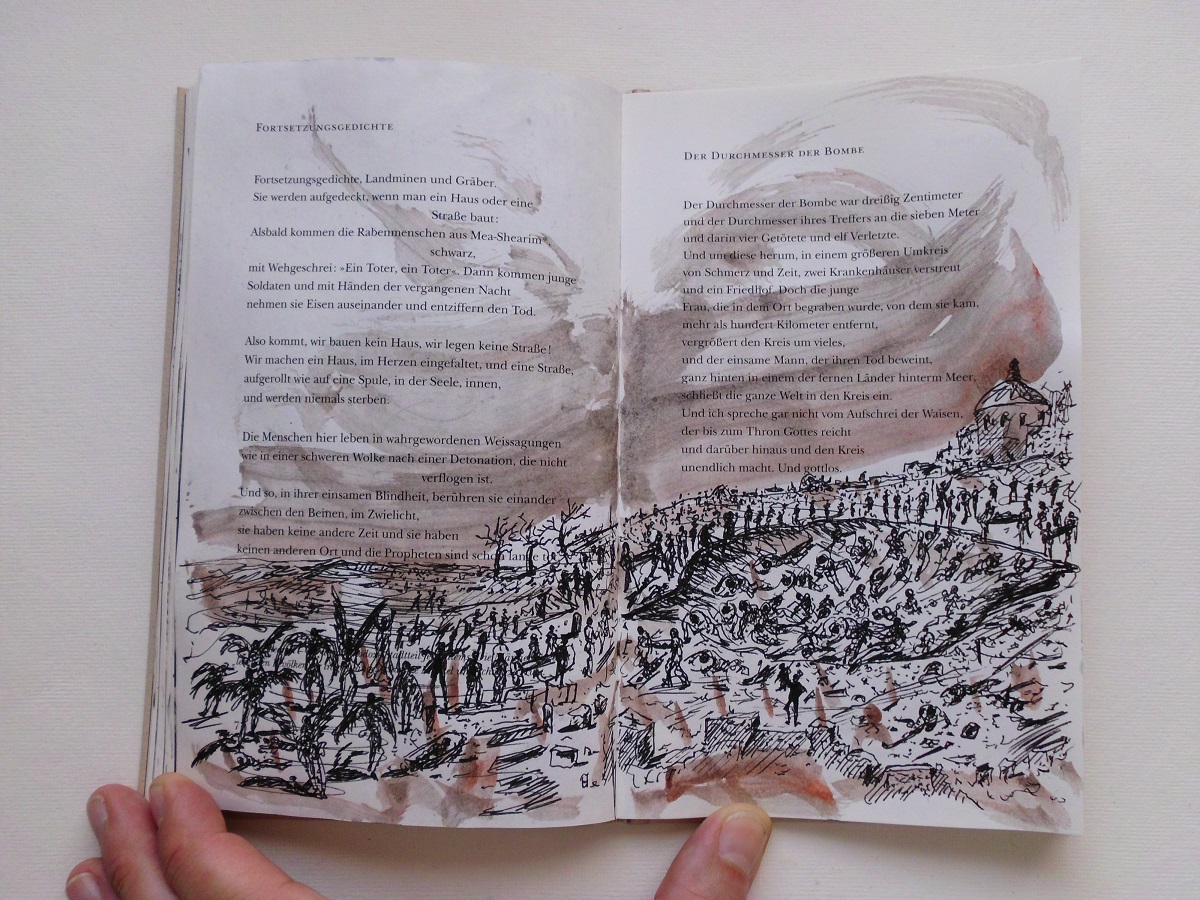 FORTSETZUNGSGEDICHTE
Fortsetzungsgedichte, Landminen und Gräber.
Sie werden aufgedeckt, wenn man ein Haus oder eine
Straße baut:
Alsbald kommen die Rabenmenschen aus Mea-Shearim*,
schwarz,
mit Wehgeschrei: »Ein Toter, ein Toter«. Dann kommen junge
Soldaten und mit Händen der vergangenen Nacht
nehmen sie Eisen auseinander und entziffern den Tod.
Also kommt, wir bauen kein Haus, wir legen keine Straße!
Wir machen ein Haus, im Herzen eingefaltet, und eine Straße,
aufgerollt wie auf eine Spule, in der Seele, innen,
und werden niemals sterben.
Die Menschen hier leben in wahrgewordenen Weissagungen
wie in einer schweren Wolke nach einer Detonation, die nicht
verflogen ist.
Und so, in ihrer einsamen Blindheit, berühren sie einander
zwischen den Beinen, im Zwielicht,
sie haben keine andere Zeit und sie haben
keinen anderen Ort und die Propheten sind schon lange
DER DURCHMESSER DER BOMBE
Der Durchmesser der Bombe war dreißig Zentimeter
und der Durchmesser ihres Treffers an die sieben Meter
und darin vier Getötete und elf Verletzte.
Und um diese herum, in einem größeren Umkreis
von Schmerz und Zeit, zwei Krankenhäuser verstreut
und ein Friedhof. Doch die junge
Frau, die in dem Ort begraben wurde, von dem sie kam,
mehr als hundert Kilometer entfernt,
vergrößert den Kreis um vieles,
und der einsame Mann, der ihren Tod beweint,
ganz hinten in einem der fernen Länder hinterm Meer,
schließt die ganze Welt in den Kreis ein.
Und ich spreche gar nicht vom Aufschrei der Waisen,
der bis zum Thron Gottes reicht
und darüber hinaus und den Kreis
unendlich macht. Und gottlos.